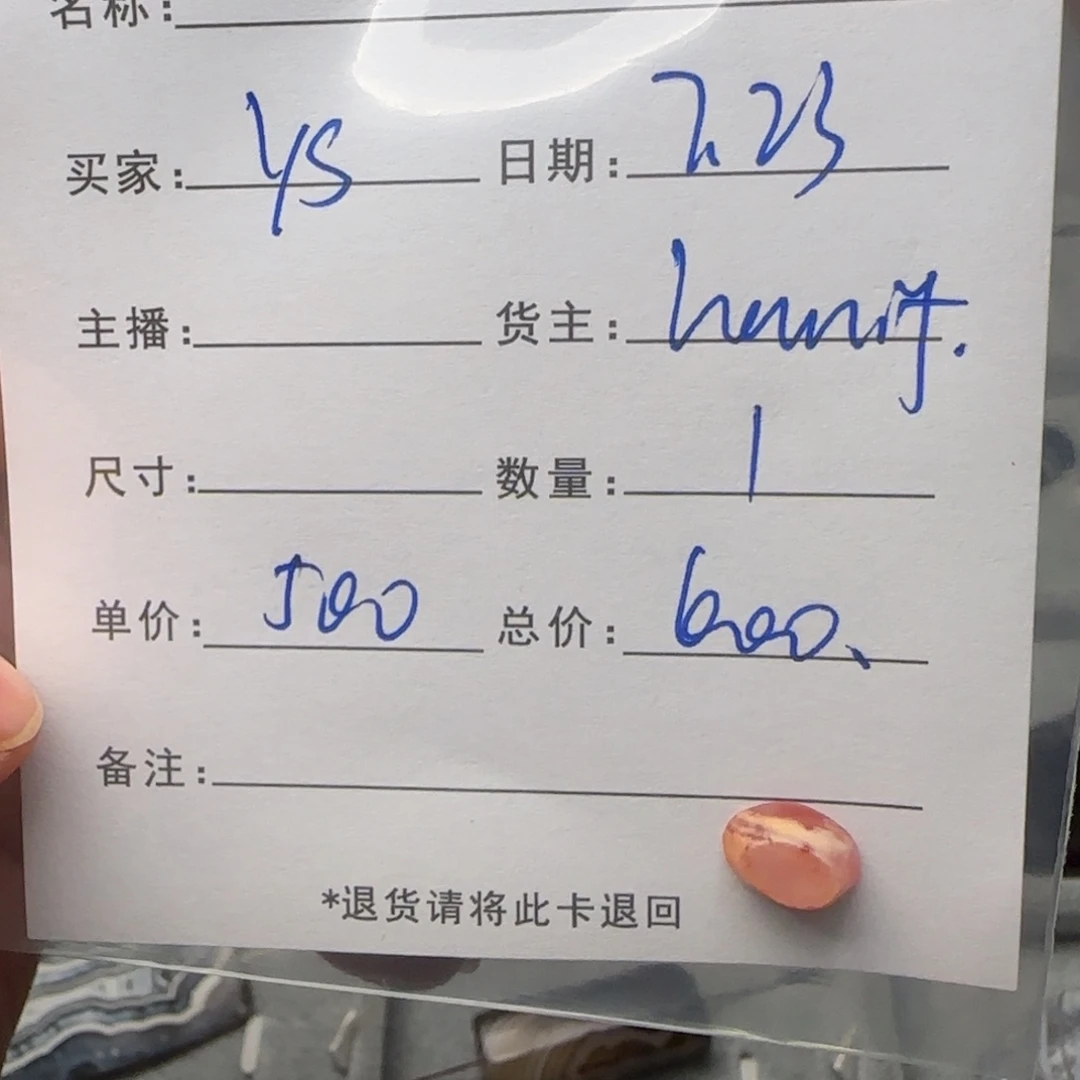 名称:
买家: YS 日期: 7.23
主播: 货主:
尺寸: 数量: 1
单价: 500 总价: 600、
备注:
*退货请将此卡退回